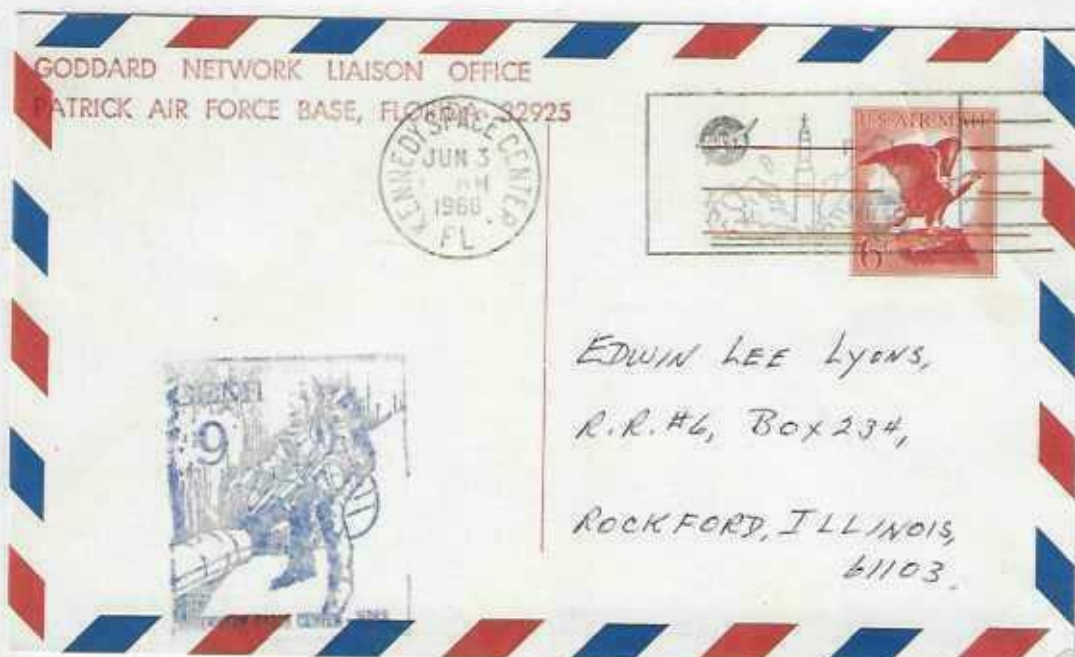 GODDARD NETWORK LIAISON OFFICE
PATRICK AIR FORCE BASE, FLORIDA, 32925
KENNEDY SPACE CENTER
JUN 3
1966
FL
U.S. AIR MAIL
6¢
9
EDWIN LEE LYONS,
R.R.#6, BOX 234,
ROCKFORD, ILLINOIS,
61103.
SPACE CENTER